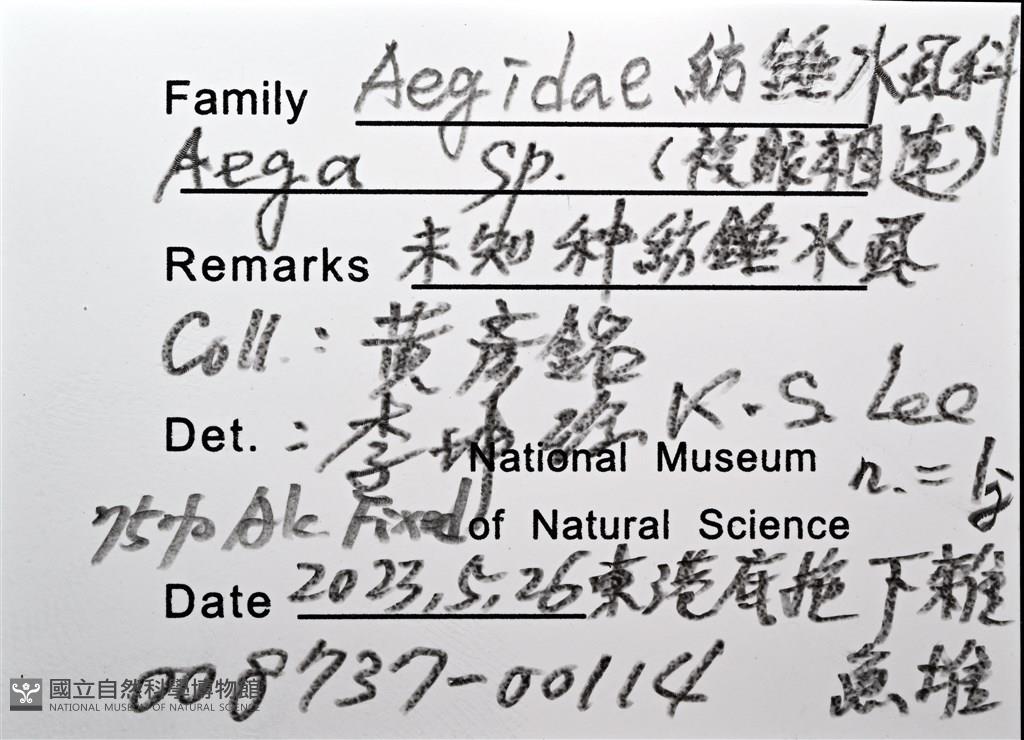 Family Aegidae 紡錘水虱科
Aega sp. (複眼相連)
Remarks 未知种紡錘水虱
Coll.: 黃彥銘
Det.: 李坤瑄 K.S. Lee
National Museum n.=1隻
75% Alc Fixed of Natural Science
Date 2023.5.26 東港底拖下雜
008737-00114 魚堆
國立自然科學博物館
NATIONAL MUSEUM OF NATURAL SCIENCE